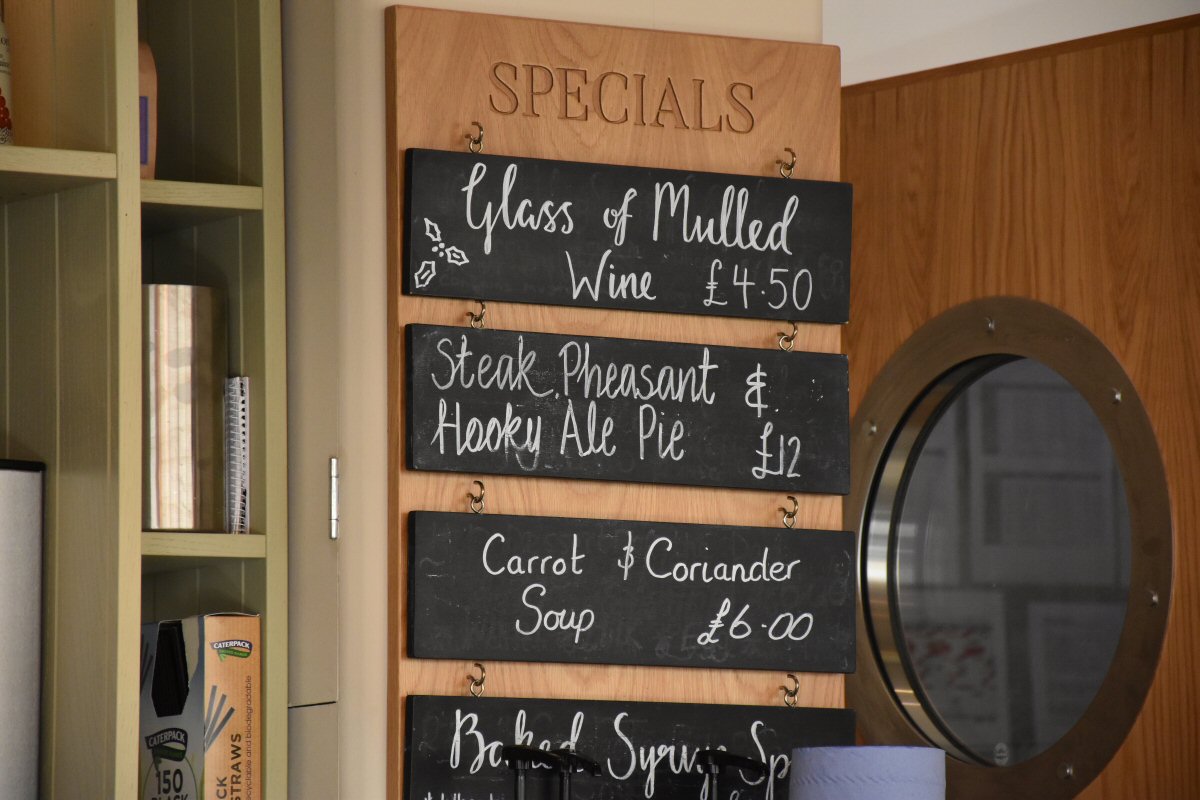 SPECIALS
Glass of Mulled
Wine £4.50
Steak, Pheasant &
Hooky Ale Pie £12
Carrot & Coriander
Soup £6.00
Baked Syrup
CATERPACK
CATERPACK
150
BLACK
STRAWS
recyclable and biodegradable